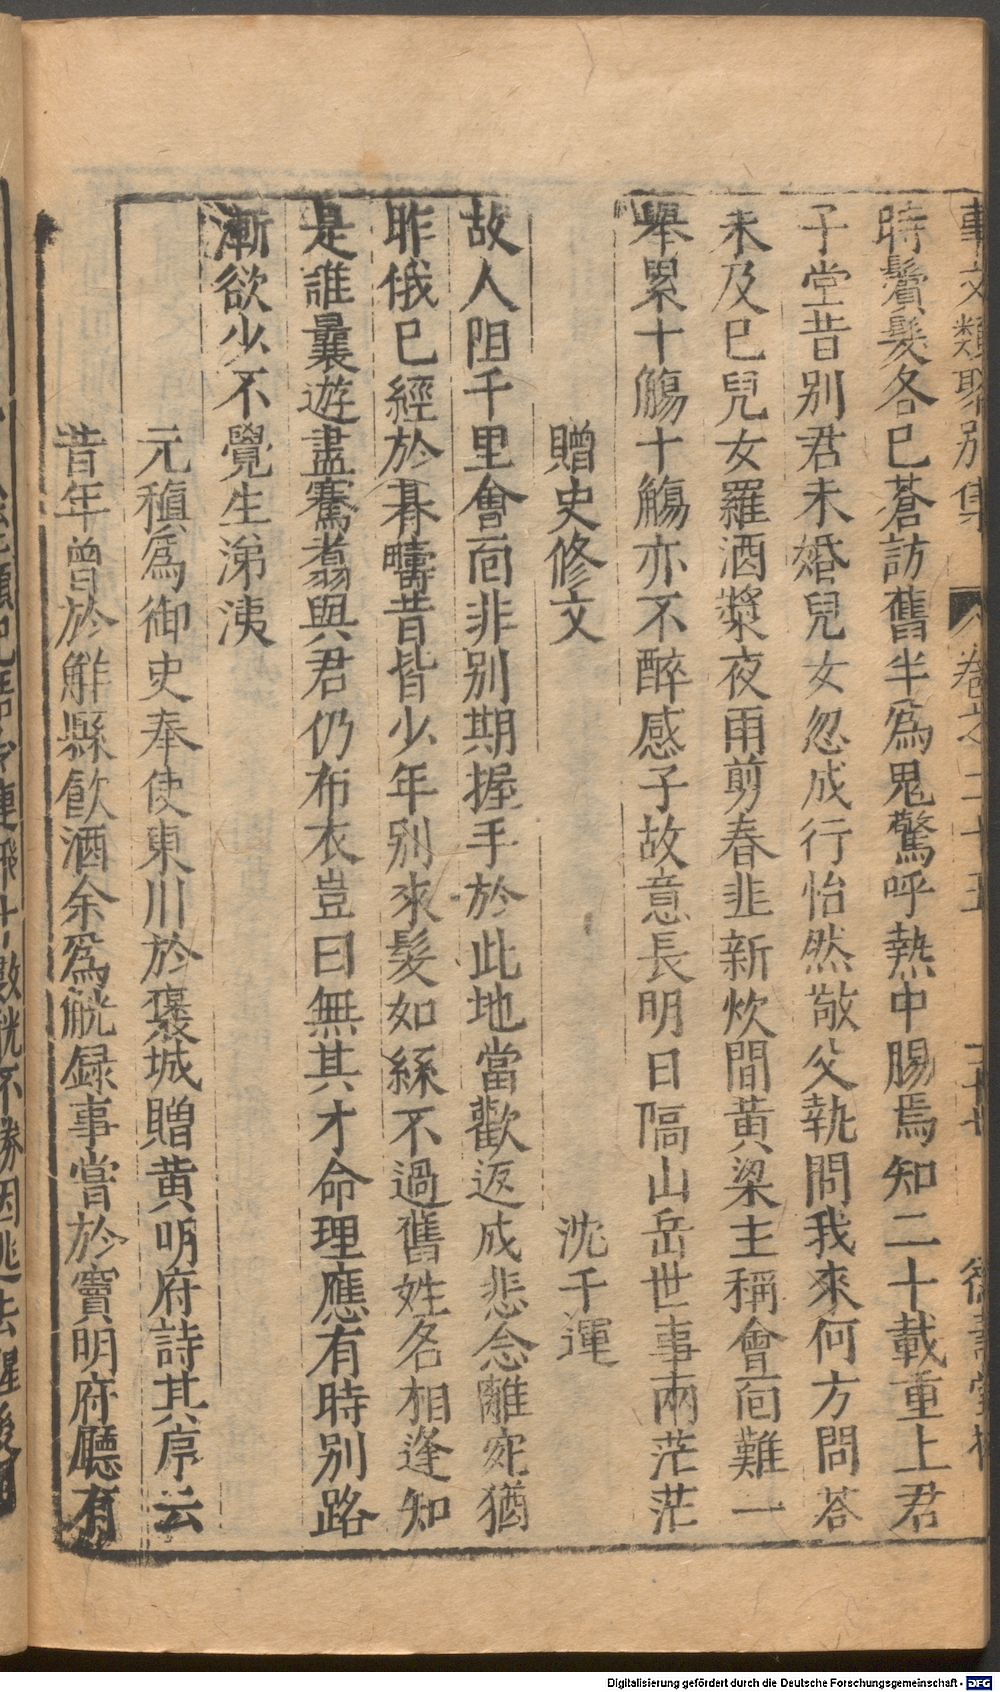 事文類聚别集 卷之二十五
時鬢髮各已蒼訪舊半爲鬼驚呼熱中腸焉知二十載重上君
子堂昔别君未婚兒女忽成行怡然敬父執問我來何方問荅
未及已兒女羅酒漿夜雨剪春韭新炊間黄粱主稱會面難一
舉累十觴十觴亦不醉感子故意長明日隔山岳世事兩茫茫
贈史修文 沈千運
故人阻千里會面非别期握手於此地當歡返成悲念離宛猶
昨俄已經於朞疇昔皆少年别來髮如絲不過舊姓名相逢知
是誰曩遊盡騫翥與君仍布衣豈曰無其才命理應有時别路
漸欲少不覺生涕洟
元稹爲御史奉使東川於褒城贈黄明府詩其序云
昔年曾於解縣飲酒余爲觥録事嘗於竇明府廳有
連飛十數觥不勝因逃去醒後
Digitalisierung gefördert durch die Deutsche Forschungsgemeinschaft - DFG